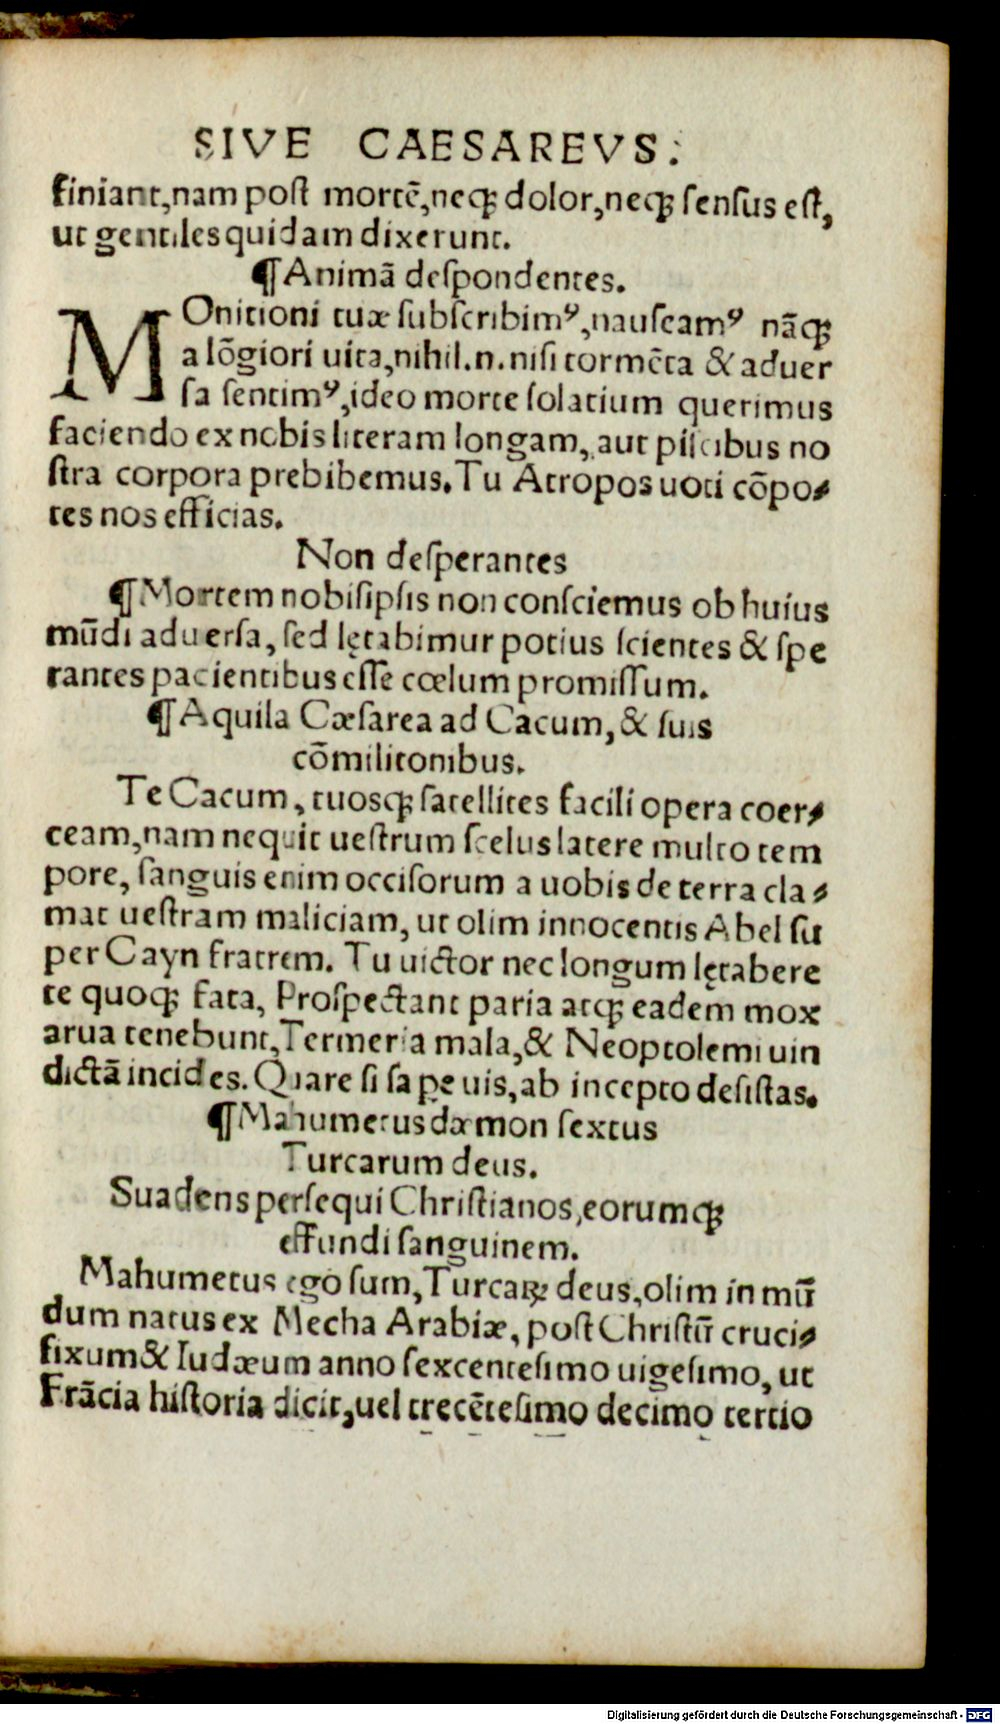 SIVE CAESAREVS.
finiant, nam post mortẽ, neqꝫ dolor, neqꝫ sensus est,
ut gentiles quidam dixerunt.
¶ Animã despondentes.
MOnitioni tuæ subscribimꝰ, nauseamꝰ nãqꝫ
a lõgiori uita, nihil .n. nisi tormẽta & aduer
sa sentimꝰ, ideo morte solatium querimus
faciendo ex nobis literam longam, aut piscibus no
stra corpora prebibemus. Tu Atropos uoti cõpo⸗
tes nos efficias.
Non desperantes
¶ Mortem nobisipsis non consciemus ob huius
mũdi aduersa, sed lętabimur potius scientes & spe
rantes pacientibus esse cœlum promissum.
¶ Aquila Cæsarea ad Cacum, & suis
cõmilitonibus.
Te Cacum, tuosqꝫ satellites facili opera coer⸗
ceam, nam nequit uestrum scelus latere multo tem
pore, sanguis enim occisorum a uobis de terra cla⸗
mat uestram maliciam, ut olim innocentis Abel su
per Cayn fratrem. Tu uictor nec longum lętabere
te quoqꝫ fata, Prospectant paria atqꝫ eadem mox
arua tenebunt, Termeria mala, & Neoptolemi uin
dictã incides. Quare si sape uis, ab incepto desistas.
¶ Mahumetus dæmon sextus
Turcarum deus.
Suadens persequi Christianos, eorumqꝫ
effundi sanguinem.
Mahumetus ego sum, Turcaꝝ deus, olim in mũ
dum natus ex Mecha Arabiæ, post Christũ cruci⸗
fixum & Iudæum anno sexcentesimo uigesimo, ut
Frãcia historia dicit, uel trecẽtesimo decimo tertio
Digitalisierung gefördert durch die Deutsche Forschungsgemeinschaft - DFG